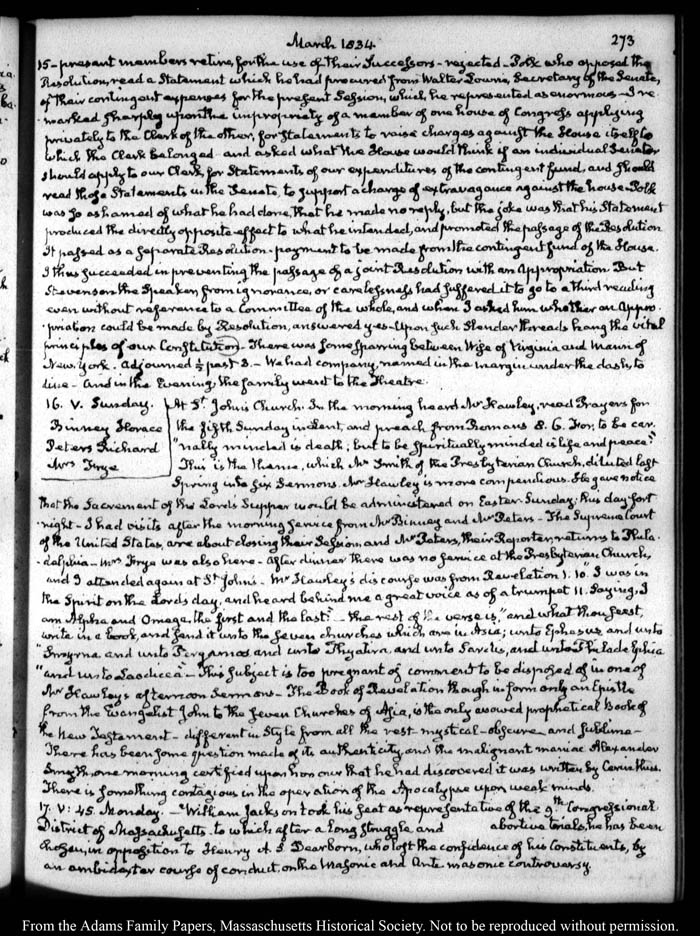 March 1834.
273
15 - present members retire, for the use of their Successors - rejected - Polk who opposed the
Resolution, read a Statement which he had procured from Walter Lowrie, Secretary of the Senate,
of their contingent expenses for the present Session, which he represented as enormous - I re-
marked sharply upon the impropriety of a member of one house of Congress applying
privately to the Clerk of the other, for Statements to raise charges against the House itself to
which the Clerk belonged - and asked what the House would think if an individual Senator
should apply to our Clerk, for Statements of our expenditures of the contingent fund, and should
read those Statements in the Senate, to support a charge of extravagance against the house - Polk
was so ashamed of what he had done, that he made no reply, but the joke was that his Statement
produced the directly opposite effect to what he intended, and promoted the passage of the Resolution
It passed as a separate Resolution - payment to be made from the contingent fund of the House.
I thus succeeded in preventing the passage of a joint Resolution with an Appropriation. But
Stevenson the Speaker, from ignorance, or carelessness had suffered it to go to a third reading
even without reference to a Committee of the whole, and when I asked him whether an Appro-
-priation could be made by Resolution, answered yes - Upon such slender threads hang the vital
principles of our Constitution - There was some sparring between Wise of Virginia and Mann of
New York. Adjourned ½ past 3. - We had company, named in the margin under the dash, to
dine - And in the Evening, the family went to the Theatre.
16. V. Sunday.
Binney Horace
Peters Richard
Mrs Frye
At St. John's Church. In the morning heard Mr Hawley, read Prayers for
the fifth Sunday in Lent, and preach from Romans 8. 6. For, to be car-
"nally minded is death; but to be Spiritually minded is life and peace."
This is the theme, which Mr Smith of the Presbyterian Church, diluted last
Spring into six Sermons. Mr Hawley is more compendious. He gave notice
that the Sacrament of the Lord's Supper would be administered on Easter Sunday, this day fort-
-night - I had visits after the morning service from Mr Binney and Mr Peters - The Supreme Court
of the United States, are about closing their Session, and Mr Peters, their Reporter, returns to Phila-
-delphia - Mrs Frye was also here - After dinner there was no service at the Presbyterian Church,
and I attended again at St John's - Mr Hawley's discourse was from Revelation 1. 10 "I was in
the Spirit on the Lords day, and heard behind me a great voice as of a trumpet 11. Saying, I
am Alpha and Omega, the first and the last" - the rest of the verse is, "and what thou seest,
write in a book, and send it unto the seven churches which are in Asia; unto Ephesus and unto
"Smyrna and unto Pergamos and unto Thyatira, and unto Sardis, and unto Philadelphia
"and unto Laodicea - This subject is too pregnant of comment to be disposed of in one of
Mr Hawley's afternoon Sermons - The Book of Revelation though in form only an Epistle
from the Evangelist John to the seven Churches of Asia, is the only avowed prophetical Book of
the New Testament - different in Style from all the rest - mystical - obscure and sublime -
There has been some question made of its authenticity, and the malignant maniac Alexander
Smyth one morning certified upon honour that he had discovered it was written by Cerinthus.
There is something contagious in the operation of the Apocalypse upon weak minds.
17. V: 45. Monday. - William Jackson took his seat as representative of the 9th Congressional
District of Massachusetts. to which after a long struggle and abortive trials, he has been
chosen, in opposition to Henry A. S. Dearborn, who lost the confidence of his Constituents, by
an ambidexter course of conduct, on the Masonic and Anti masonic controversy.
From the Adams Family Papers, Massachusetts Historical Society. Not to be reproduced without permission.